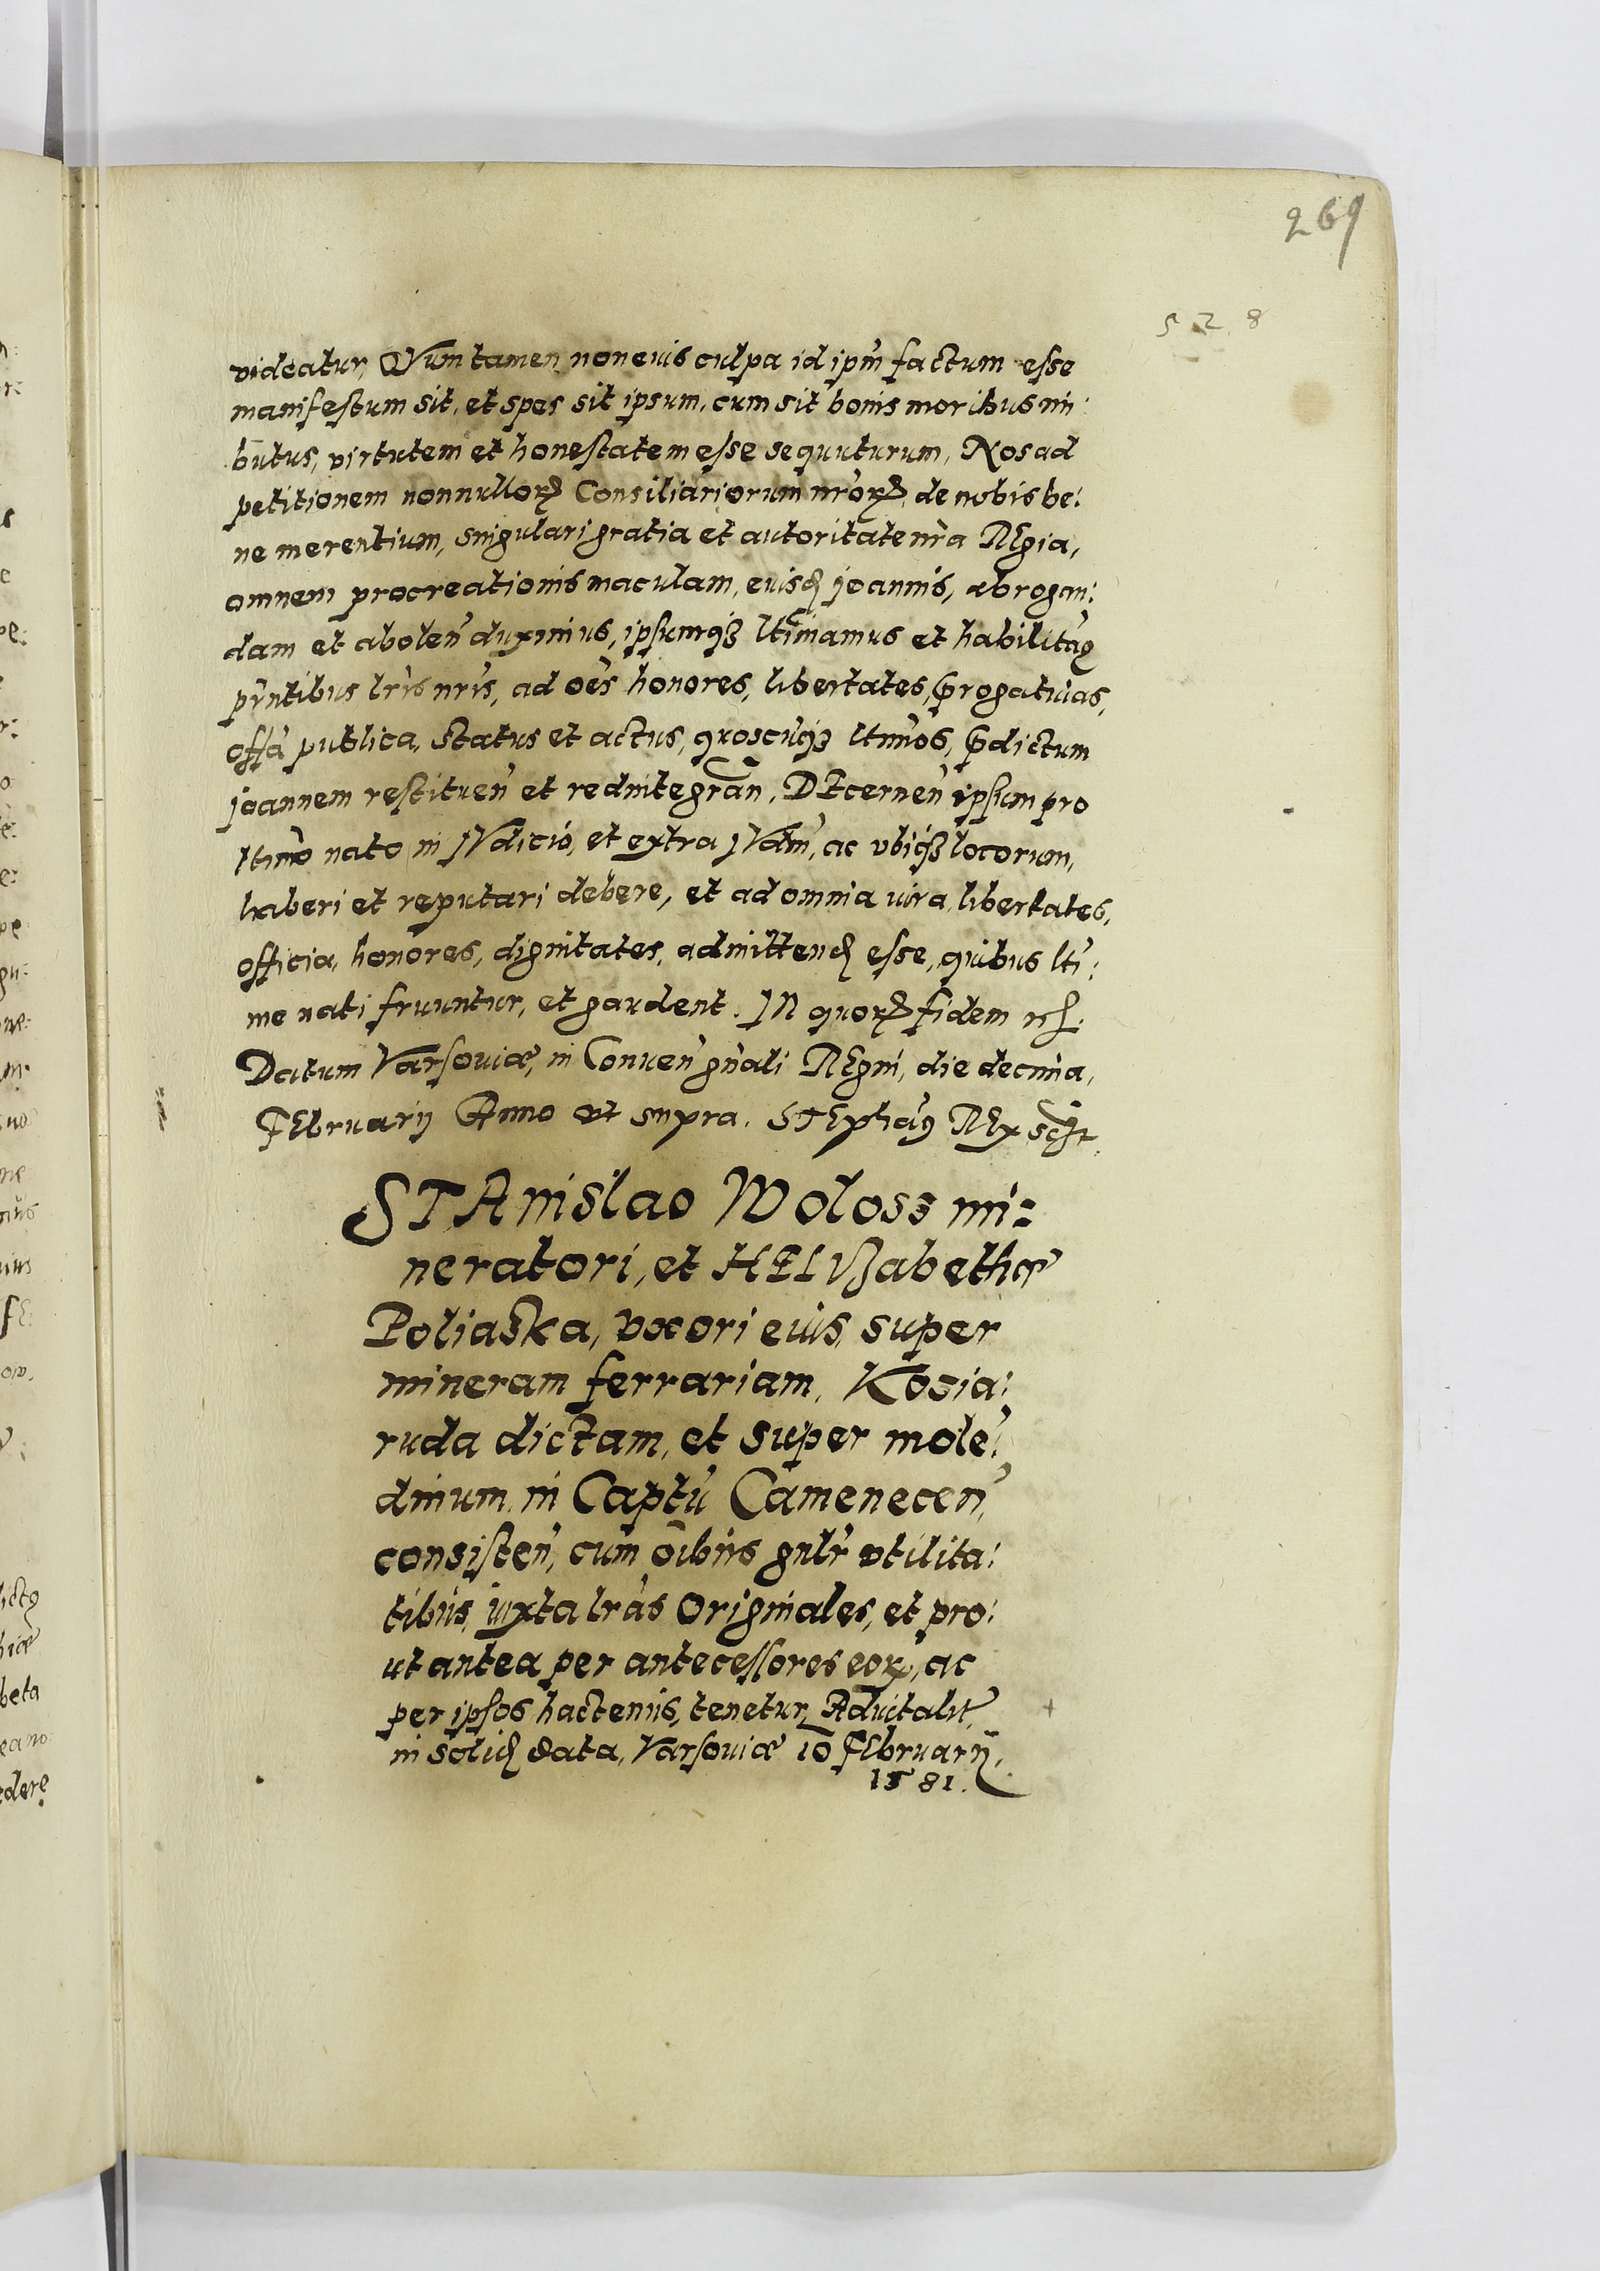 269
5 2 8
videatur, QVum tamen non eius culpa id ipm̃ factum esse
manifestum sit, et spes sit ipsum, cum sit bonis moribus im:
butus, virtutem et honestatem esse sequuturum, Nos ad
petitionem nonnulloꝝ Consiliariorum nr̃oꝝ, de nobis be:
ne merentium, singulari gratia et autoritate nr̃a REgia,
omnem procreationis maculam, eiusđ joannis, abrogan:
dam et abolen̄ duximus, ipsumqȝ ltimamus et habilitaꝰ
pn̄tibus lr̃is nr̃is, ad oẽs honores, libertates, p̃rogatiuas,
offã publica, status et actus, quoscūqȝ ltimos, p̃dictum
joannem restituen̄ et redintegran̄, DEcernen̄ ipsum pro
ltimo nato in jVdicio, et extra jVdm̄, ac vbiqȝ locorum,
haberi et reputari debere, et ad omnia iura, libertates,
officia, honores, dignitates, admittenđ esse, quibus lti:
me nati fruuntur, et gaudent. JN quoꝝ fidem
Datum Varsouiæ, in Conuen̄ gn̄ali REgni, die decima,
FEbruarij Anno vt supra. STEphaꝰ REx
STAnislao Woloss mi:
neratori, et HELVßabethæ
Poliaska, vxori eius, super
mineram ferrariam, Kosia:
ruda dictam, et super molē:
dinum, in Captū Camenecen̄
consisten̄, cum oībus gnlr̄ vtilita:
tibus, iuxta lr̃as Originales, et pro:
ut antea per antecessores eoꝝ, ac
per ipsos hactenus, tenetur, Aduitalit̃
in soliđ data, Varsouiæ 10 FEbruarij.
1581.